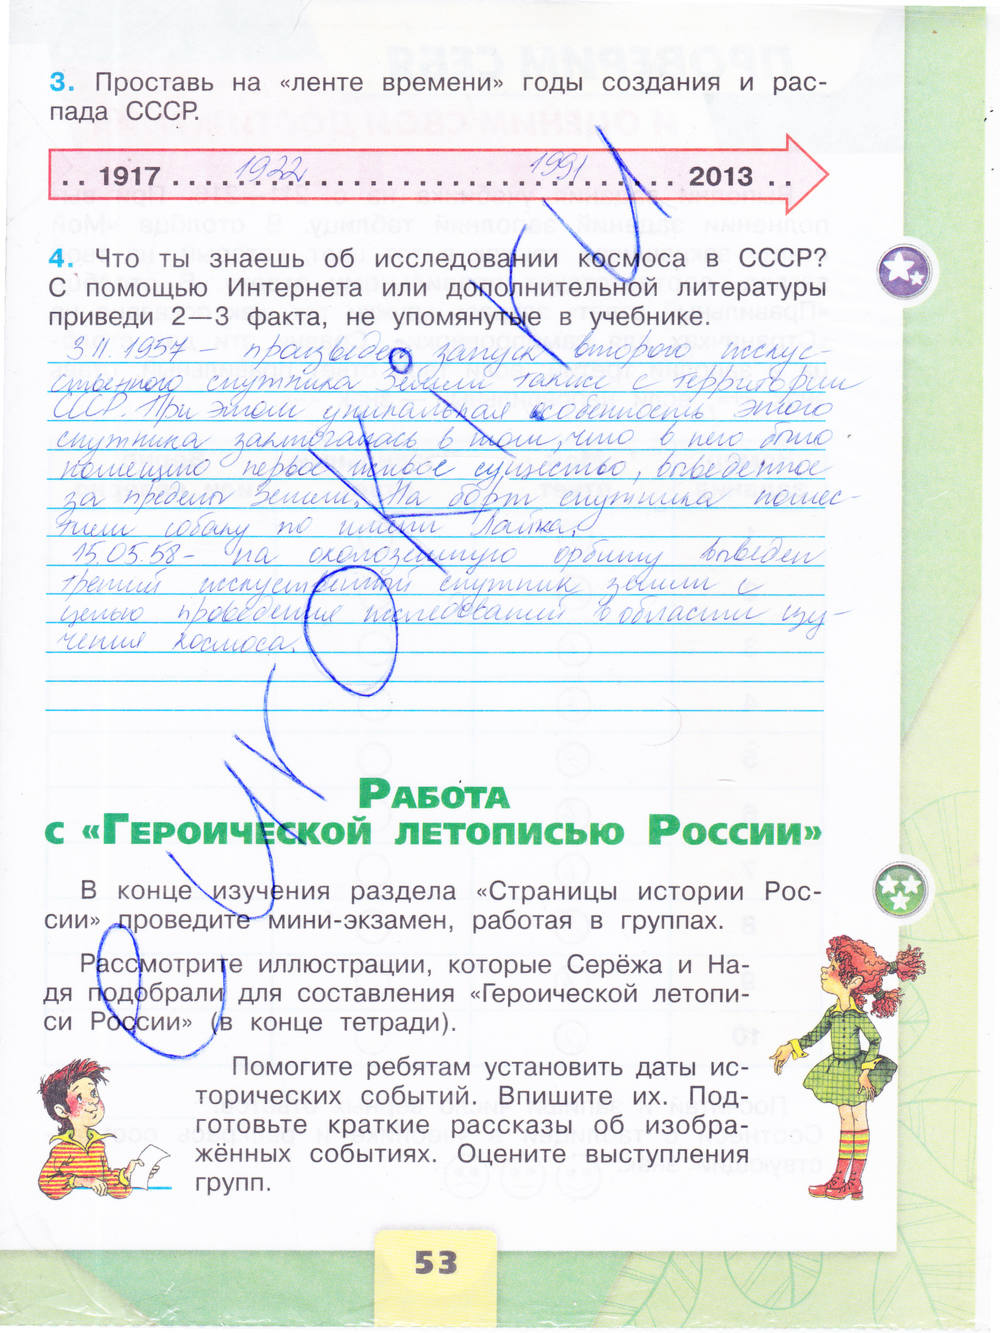 3. Проставь на «ленте времени» годы создания и рас-
пада СССР.
1917 1922 1991 2013
4. Что ты знаешь об исследовании космоса в СССР?
С помощью Интернета или дополнительной литературы
приведи 2—3 факта, не упомянутые в учебнике.
3 11. 1957 - произведен запуск второго искус-
ственного спутника Земли также с территории
СССР. При этом уникальная особенность этого
спутника заключалась в том, что в него было
помещено первое живое существо, выведенное
за пределы Земли. На борт спутника помес-
тили собаку по имени Лайка.
15.05.58 - на околоземную орбиту выведен
третий искуственной спутник земли с
целью проведения исследований в области изу-
чения космоса.
Работа
с «Героической летописью России»
В конце изучения раздела «Страницы истории Рос-
сии» проведите мини-экзамен, работая в группах.
Рассмотрите иллюстрации, которые Серёжа и На-
дя подобрали для составления «Героической летопи-
си России» (в конце тетради).
Помогите ребятам установить даты ис-
торических событий. Впишите их. Под-
готовьте краткие рассказы об изобра-
жённых событиях. Оцените выступления
групп.
53